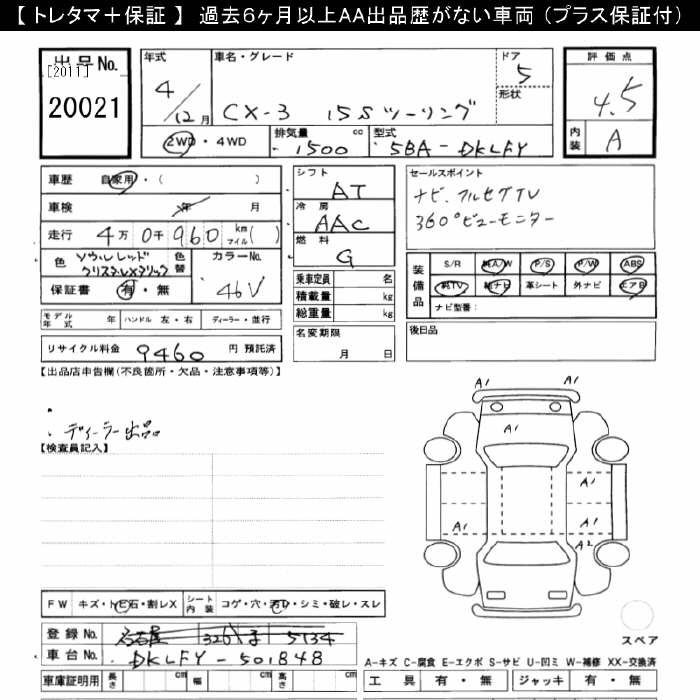 【 トレタマ＋保証 】 過去6ヶ月以上AA出品歴がない車両 (プラス保証付)
出品No.
[2011]
20021
年式
4/12月
車名・グレード
CX-3 15Sツーリング
ドア
5
形状
評価点
4.5
内装
A
2WD・4WD
排気量 1500 cc
型式 5BA-DKLFY
車歴 自家用・( )
車検 年 月
走行 4万0千960 km マイル( )
色 ソウルレッドクリスタルメタリック
色替
カラーNo. 46V
保証書 有・無
シフト
AT
冷房
AAC
燃料
G
乗車定員 名
積載量 kg
総重量 kg
セールスポイント
ナビ、フルセグTV
360°ビューモニター
装備品
S/R 純A/W P/S P/W ABS
純TV 純ナビ 革シート 外ナビ エアB
ナビ型番:
モデル年式 年 ハンドル 左・右 ディーラー・並行
名変期限
月 日
後日品
リサイクル料金 9460 円 預託済
【出品店申告欄(不良箇所・欠品・注意事項等)】
・
、ディーラー出品
【検査員記入】
A1 A1
A1
A1
A1 A1
A2
FW キズ・トビ石・割レX
シート内装 コゲ・穴・汚レ・シミ・破レ・スレ
登録No. 名古屋 326 ま 5134
車台No. DKLFY-501848
スペア
A-キズ C-腐食 E-エクボ S-サビ U-凹ミ W-補修 XX-交換済
車庫証明用 長さ cm 幅 cm 高さ cm
工具 有・無 ジャッキ 有・無